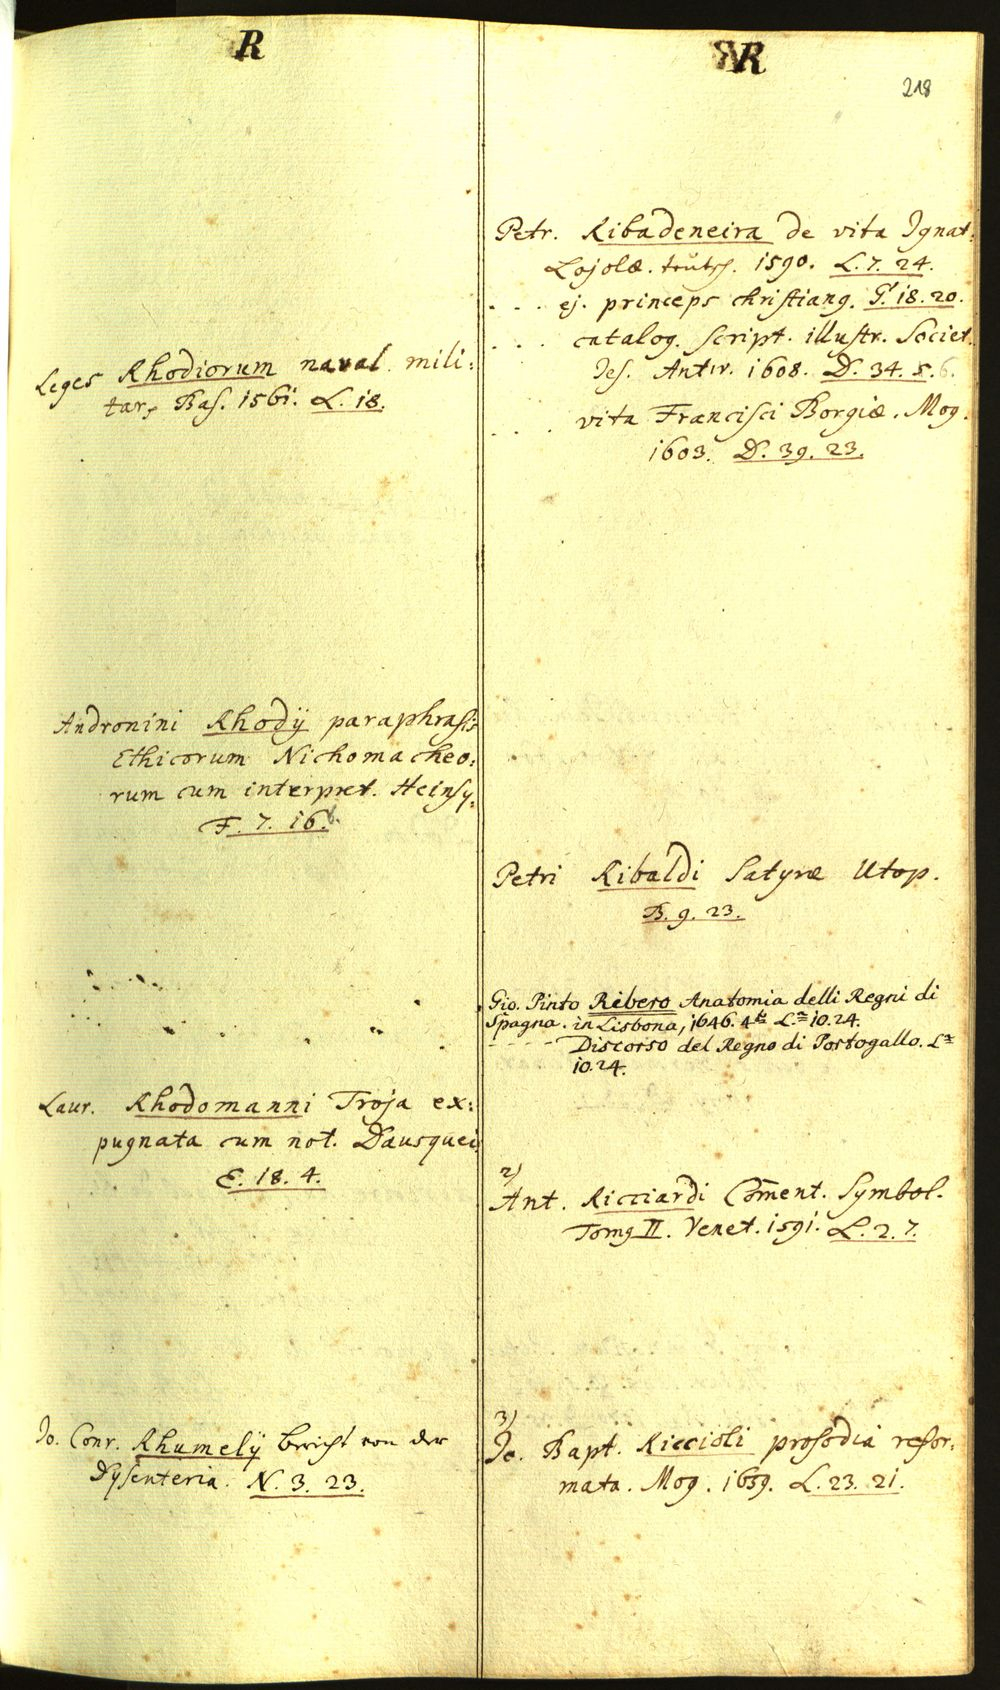 R
Leges Rhodiorum naval. mili:
tar. Bas. 1561. L. 18.
Andronini Rhodÿ paraphrasis
Ethicorum Nichomacheo:
rum cum interpret. Heinsÿ.
F. 7. 16.
Laur. Rhodomanni Troja ex:
pugnata cum not. Dausquei.
E. 18. 4.
Jo. Conr. Rhumelÿ bericht von der
Dysenteria. N. 3. 23.
R
218
Petr. Ribadeneira de vita Ignat:
Lojolæ. teutsch. 1590. L. 7. 24.
. . . ej. princeps christiang. G. 18. 20.
. . . catalog. script. illustr. Societ.
Jes. Antw. 1608. D. 34. 5. 6.
. . . vita Francisci Borgiæ. Mog.
1603. D. 39. 23.
Petri Ribaldi Satyræ Utop.
B. 9. 23.
Gio. Pinto Ribero Anatomia delli Regni di
Spagna. in Lisbona, 1646. 4to La 10. 24.
- - - - - Discorso del Regno di Portogallo. La
10. 24.
2)
Ant. Ricciardi Com̄ent. Symbol.
Tomg II. Venet. 1591. L. 2. 7.
3)
Jo. Bapt. Riccioli prosodia refor:
mata. Mog. 1659. L. 23. 21.